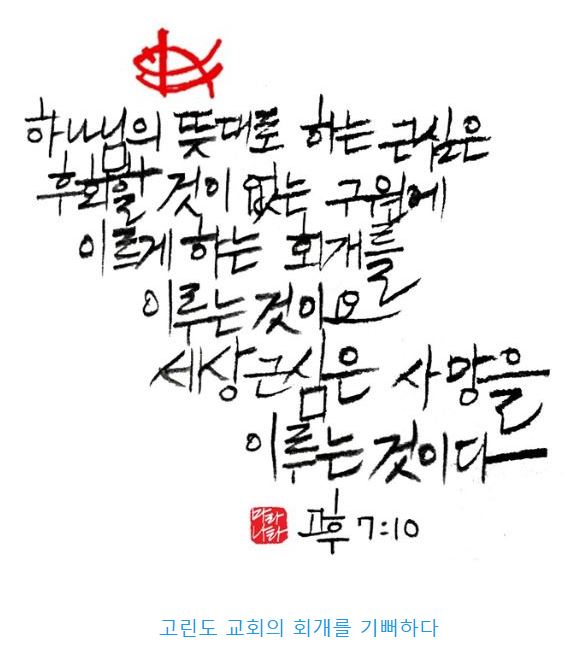 하나님의 뜻대로 하는 근심은
후회할 것이 없는 구원에
이르게 하는 회개를
이루는 것이요
세상근심은 사망을
이루는 것이다
마라
나타
고후 7:10
고린도 교회의 회개를 기뻐하다